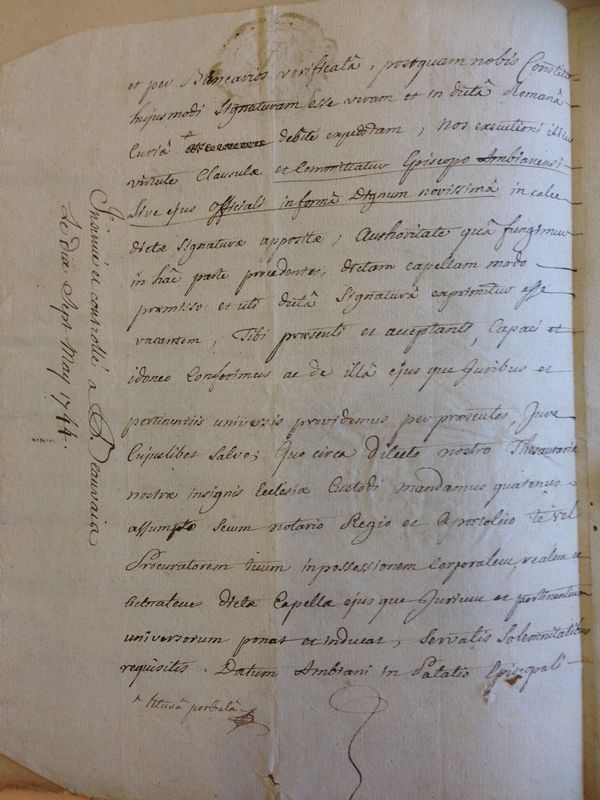 et per Bancarios verificatâ, postquam nobis Constitit
hujusmodi Signaturam esse veram et in dictâ Romanâ
Curiâ debite expeditam, nos executioni illius
virtute Clausulæ et Committatur Episcopo Ambianensi
sive ejus officiali in formâ Dignum novissimâ in calce
dictæ signaturæ appositæ, Authoritate quâ fungimur
in hâc parte procedentes, dictam capellam modo
præmisso et uti dictâ Signaturâ exprimitur esse
vacantem, Tibi præsenti et acceptanti, Capaci et
idoneo Conferimus ac de illâ ejusque Juribus et
pertinentiis universis providemus per præsentes, Jure
Cujuslibet Salvo; Quo circa dilecto nostro Thesaurario
nostræ insignis Ecclesiæ Custodi mandamus quatenus
assumpto secum notario Regio et Apostolico te vel
Procuratorem tuum in possessionem corporalem, realem et
actualem dictæ Capellæ ejusque Jurium et pertinentium
universorum ponat et inducat, servatis solemnitatibus
requisitis. Datum Ambiani in Palatio Episcopali
Insinué et controllé a Beauvais
Le dix Sept May 1744.